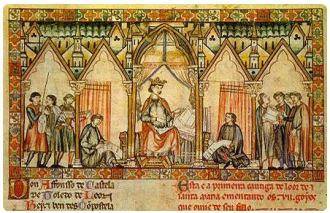 Don Affonsso de Castela
de Toledo de Leon
Rey e ben des Conpostela
Esta e a primeira cantiga de loor de
santa maria ementando os .vii. goyos
que ouue de seu fillo.